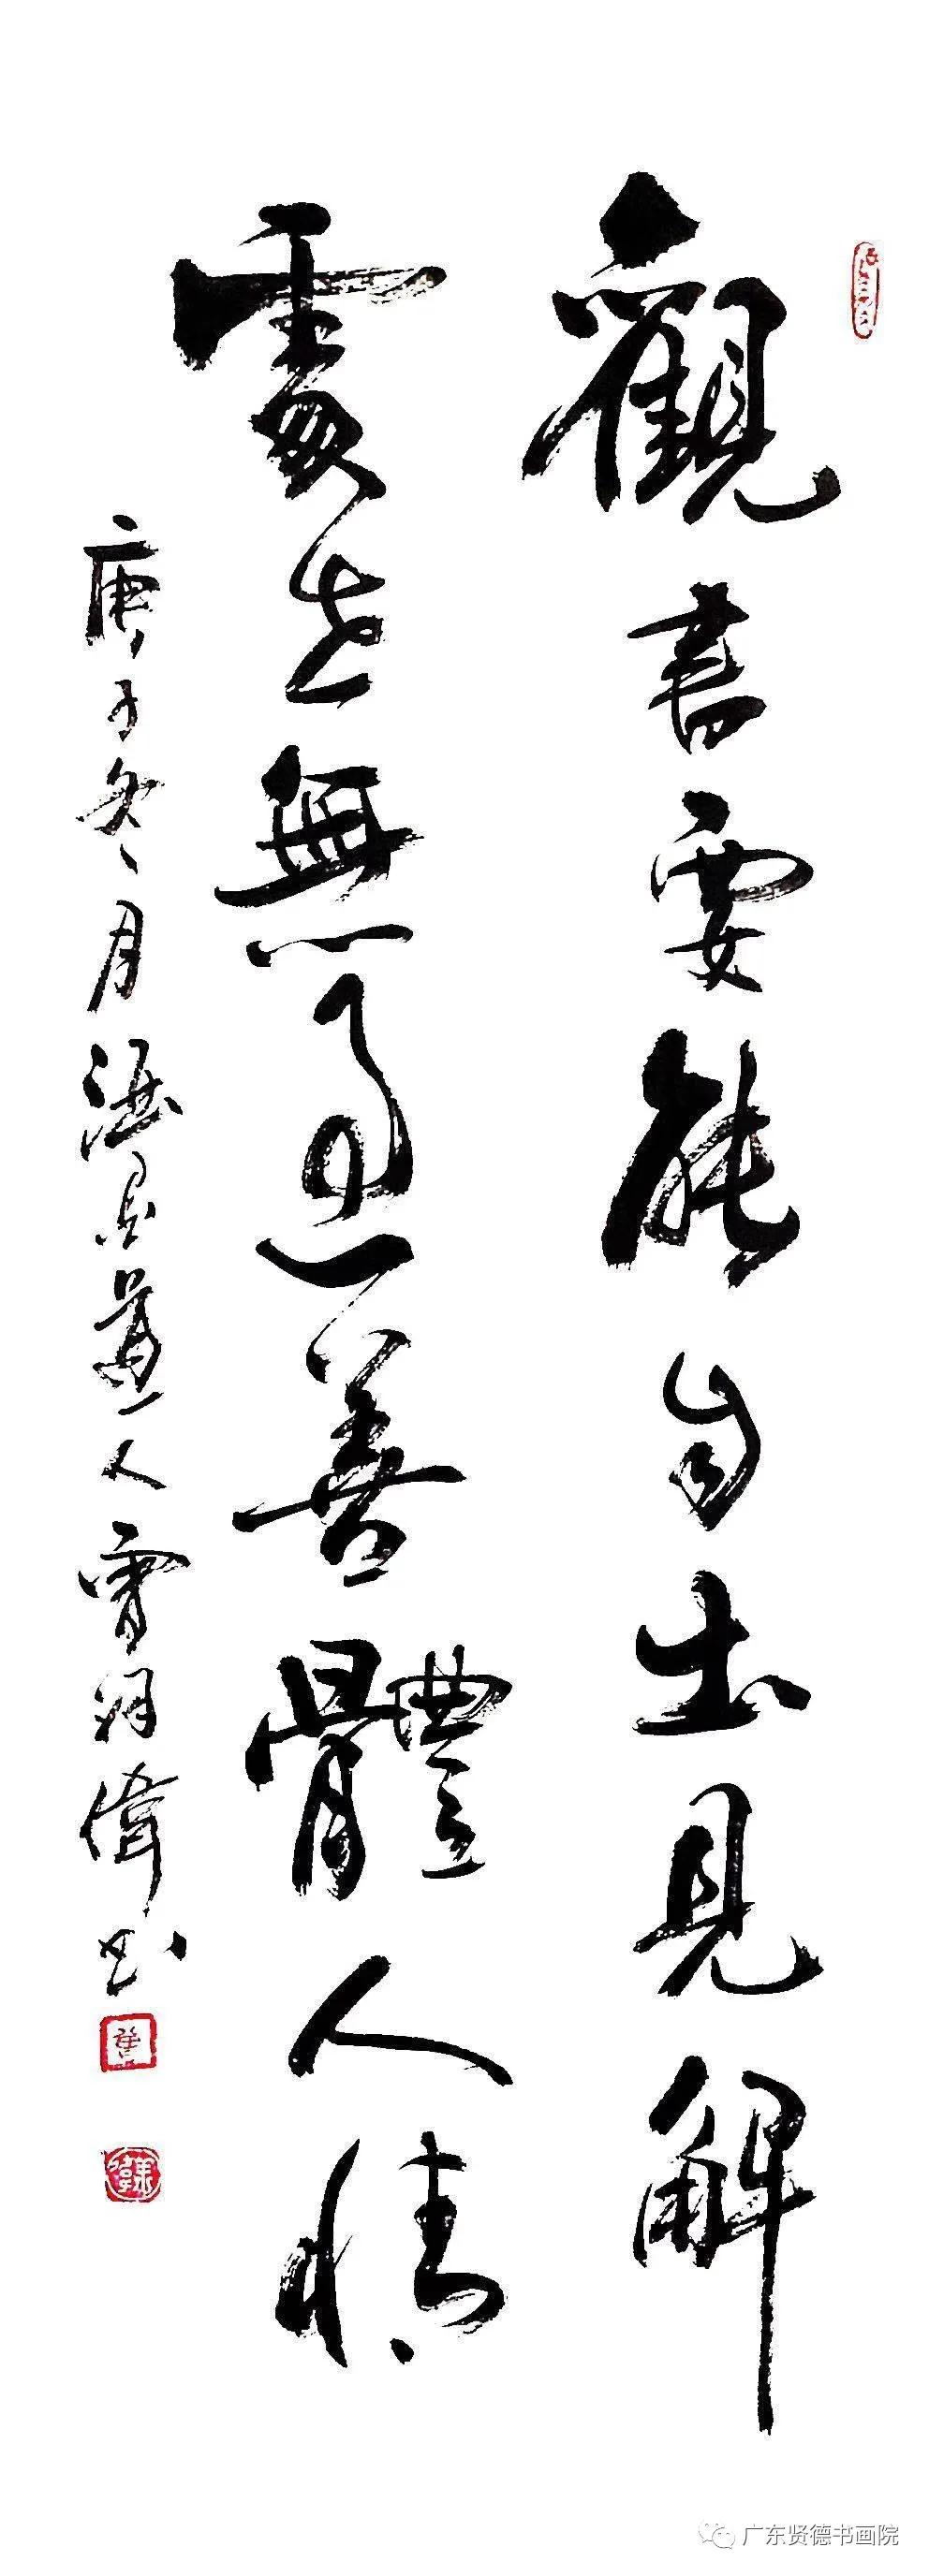 觀書要能自出見解
處世無過善體人情
庚子冬月涵墨齋人曾翔偉书
广东贤德书画院